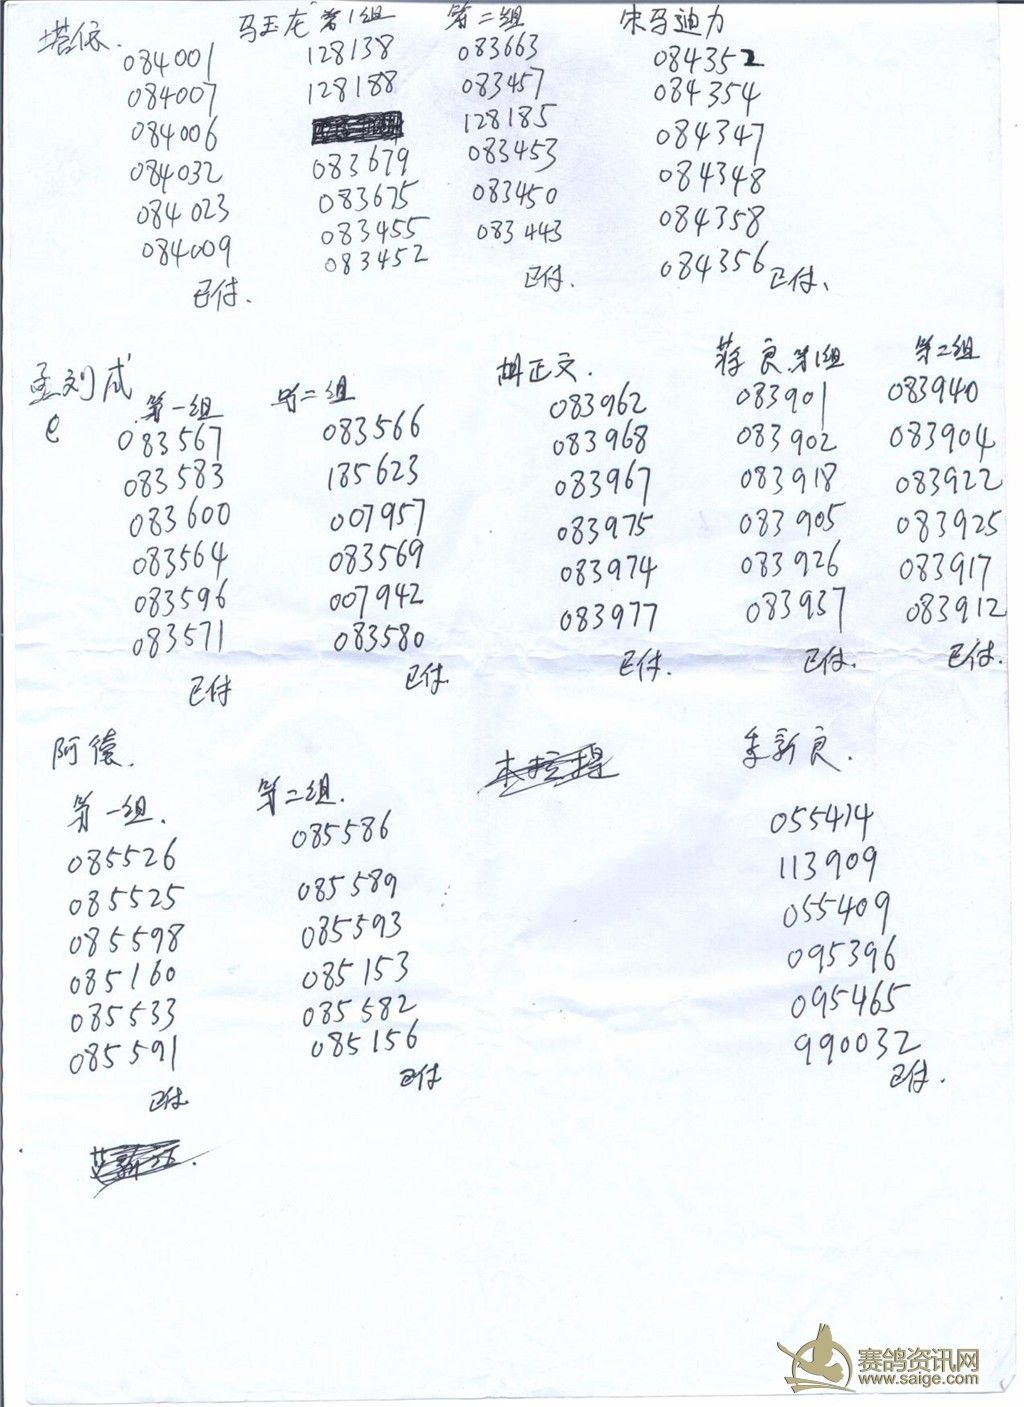 塔依.
084001
084007
084006
084032
084023
084009
已付.
马玉龙 第1组
128138
128188
083679
083675
083455
083452
第二组
083663
083457
128185
083453
083450
083443
已付.
宋马迪力
084352
084354
084347
084348
084358
084356
已付、
孟刘成
e
第一组
083567
083583
083600
083564
083596
083571
已付
第二组
083566
185623
007957
083569
007942
083580
已付.
胡正文.
083962
083968
083967
083975
083974
083977
已付.
蒋良.第1组
083901
083902
083918
083905
083926
083937
已付.
第二组
083940
083904
083922
083925
083917
083912
已付.
阿德.
第一组.
085526
085525
085598
085160
085533
085591
已付
第二组.
085586
085589
085593
085153
085582
085156
已付
季新良.
055414
113909
055409
095396
095465
990032
已付.
赛鸽资讯网
www.saige.com